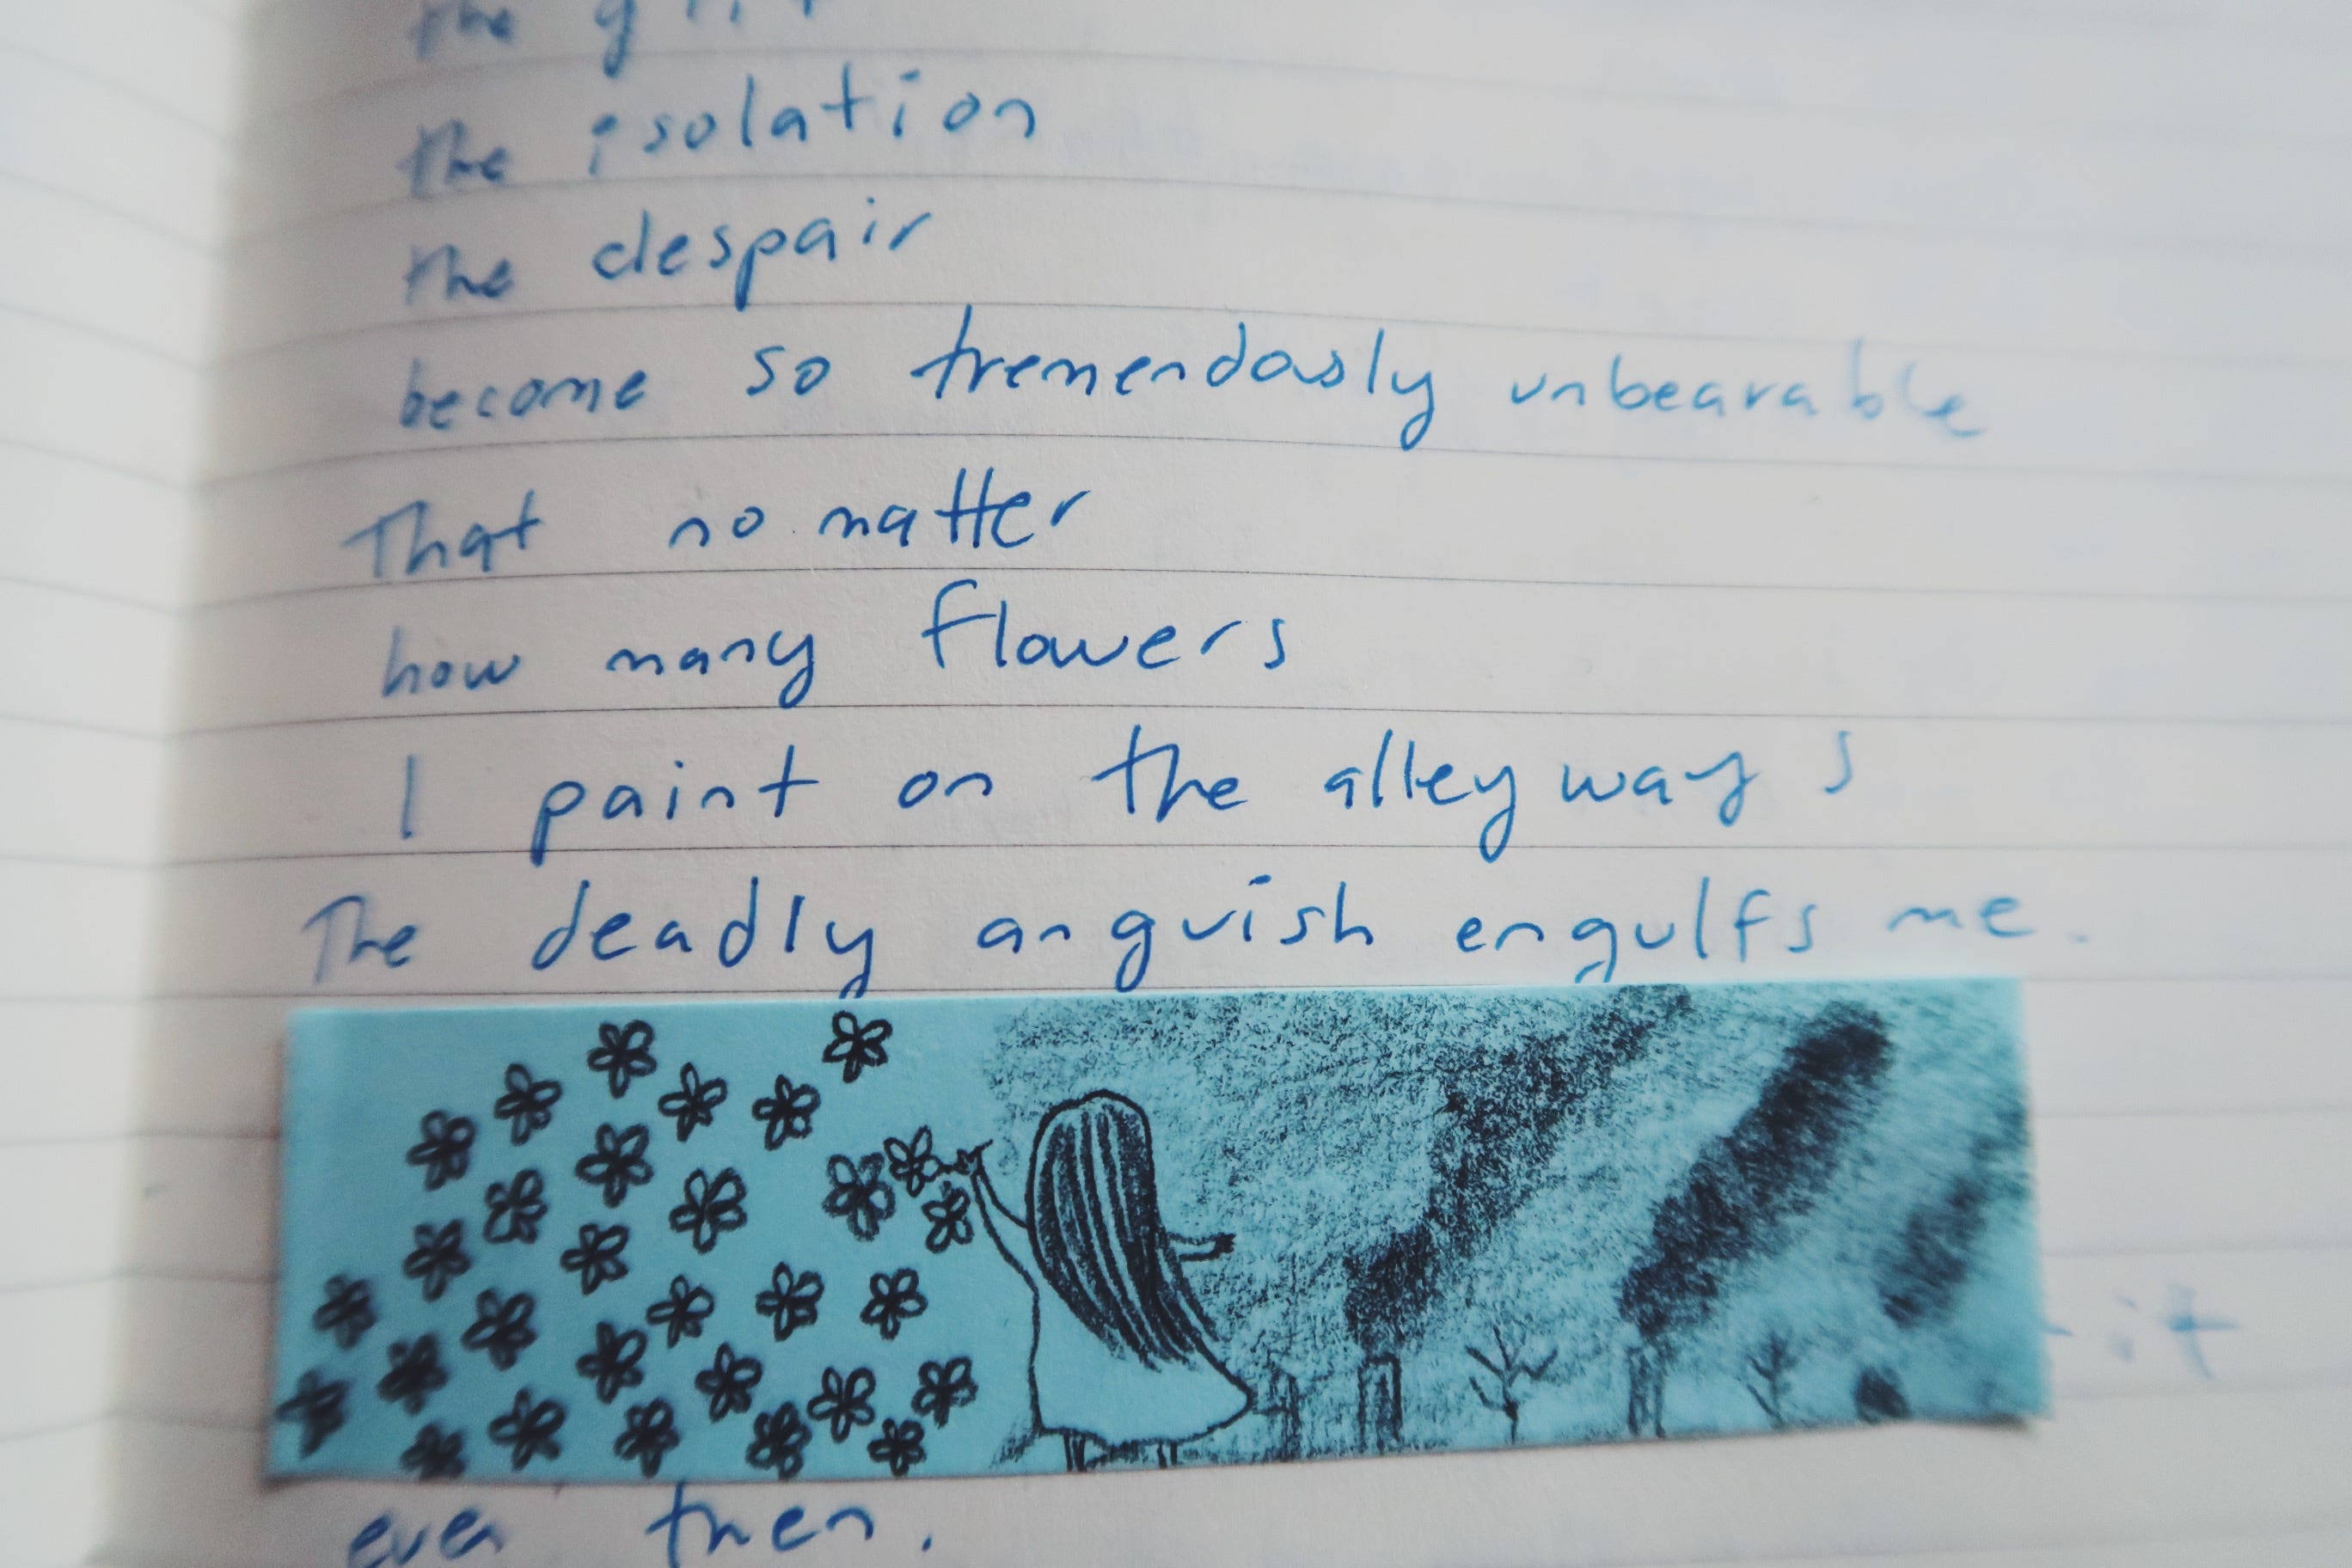 the
the isolation
the despair
become so tremendously unbearable
That no matter
how many flowers
I paint on the alleyways
The deadly anguish engulfs me.
it
even then.